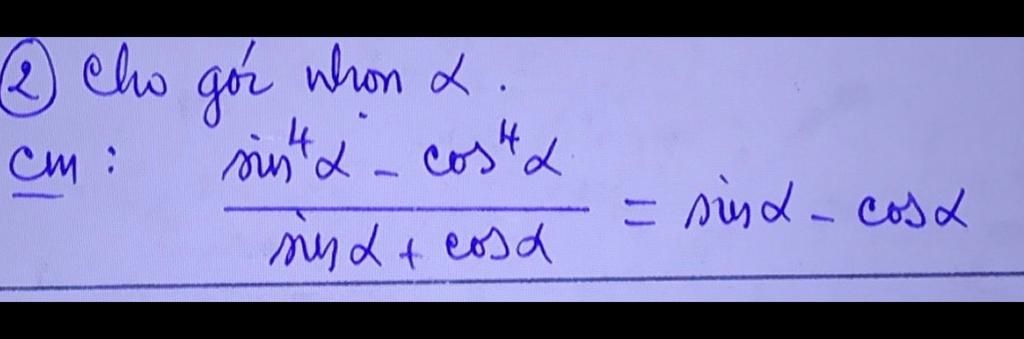 ② Cho góc nhọn α.
cm: (sin⁴α - cos⁴α) / (sinα + cosα) = sinα - cosα